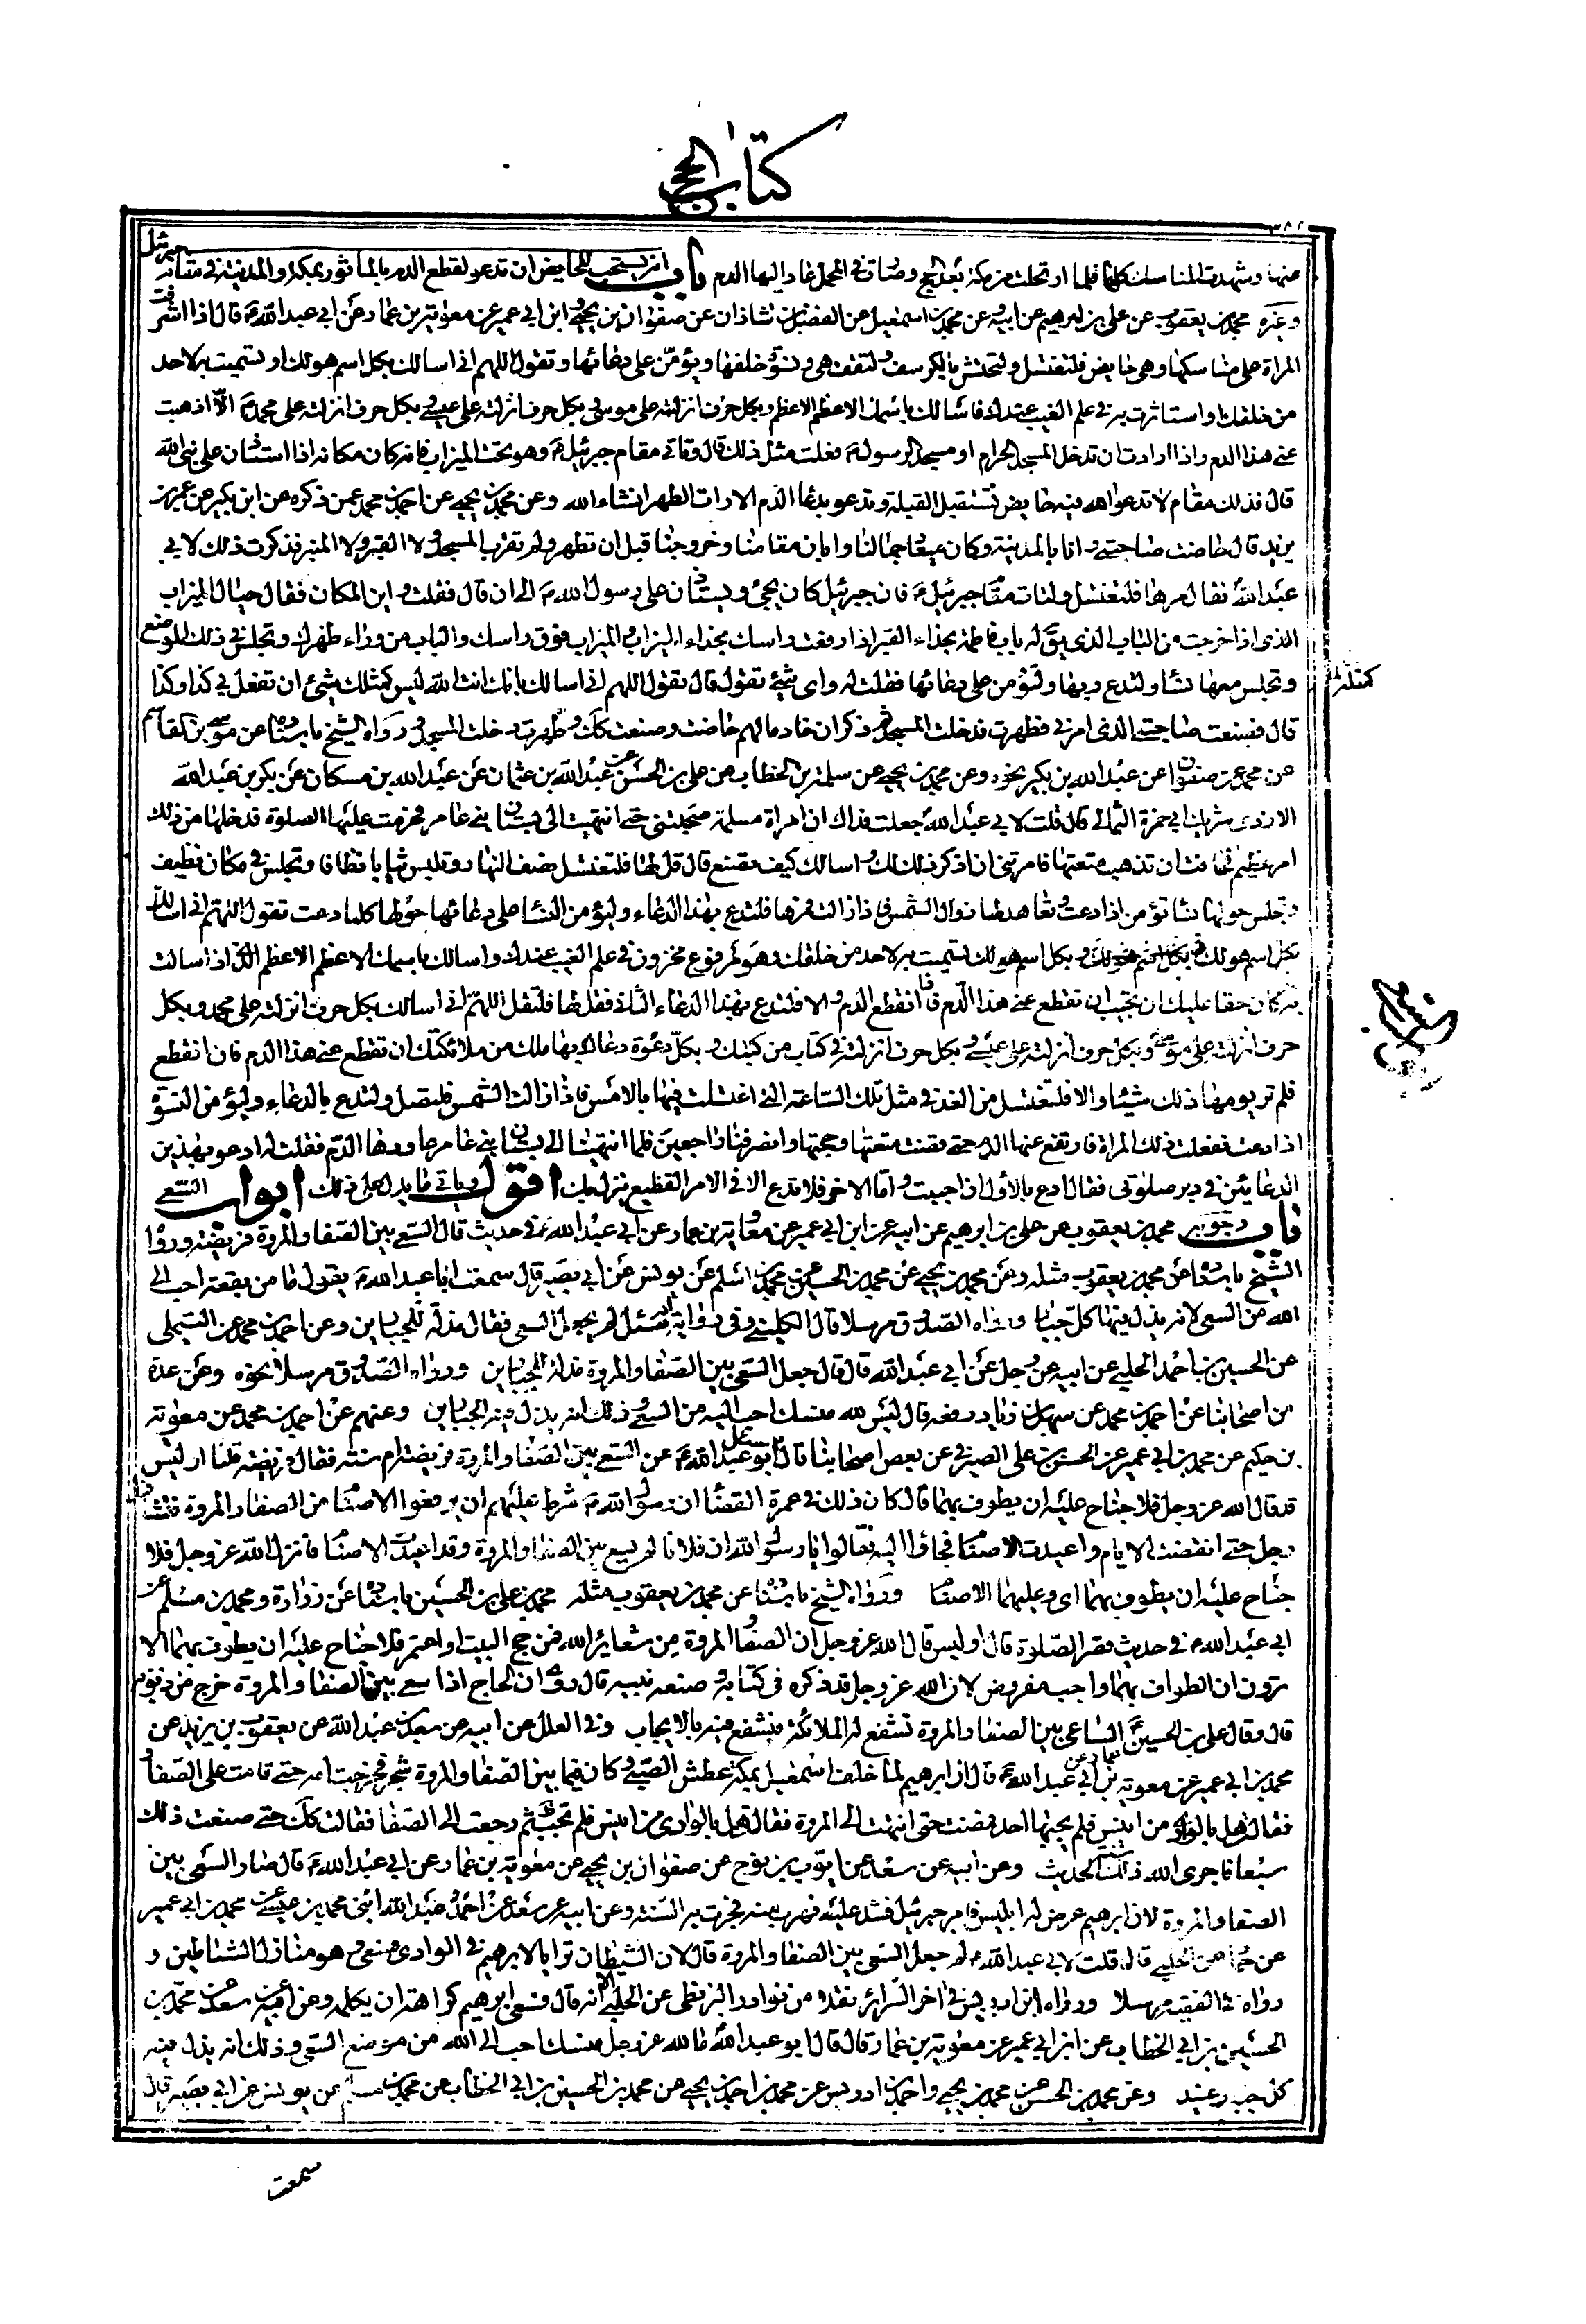 كتاب الحج
٣٨٨
عنها وشهدت المناسك كلها فلما ارتحلت من مكة بعد الحج وصارت في المحمل عاد اليها الدم باب انه يستحب للحايض ان تدعو لقطع الدم بالماثور بمكة والمدينة في مقام جبرئيل
وغيره محمد بن يعقوب عن علي بن ابرهيم عن ابيه وعن محمد بن اسمعيل عن الفضل بن شاذان عن صفوان بن يحيى وابن ابي عمير عن معوية بن عمار عن ابي عبد الله ع قال اذا اشرفت
المراة على مناسكها وهي حايض فلتغتسل ولتحتش بالكرسف ولتقف هي ونسوة خلفها ويؤمّن على دعائها وتقول اللهم اني اسالك بكل اسم هو لك او تسميت به لاحد
من خلقك او استاثرت به في علم الغيب عندك فاسالك باسمك الاعظم الاعظم وبكل حرف انزلته على موسى وبكل حرف انزلته على عيسى وبكل حرف انزلته على محمد ص الّا اذهبت
عني هذا الدم واذا ارادت ان تدخل المسجد الحرام او مسجد الرسول ص فعلت مثل ذلك قال وتاتي مقام جبرئيل ع وهو تحت الميزاب فانه كان مكانه اذا استاذن على نبي الله
قال فذلك مقام لا تدعوا الله فيه حايض تستقبل القبلة وتدعو بدعاء الدم الا رات الطهر انشاء الله وعن محمد بن يحيى عن احمد بن محمد عمن ذكره عن ابن بكير عن عمر بن
يزيد قال حاضت صاحبتي وانا بالمدينة وكان ميعاد جمالنا وابان مقامنا وخروجنا قبل ان تطهر ولم تقرب المسجد ولا القبر ولا المنبر فذكرت ذلك لابي
عبد الله ع فقال مرها فلتغتسل ولتات مقام جبرئيل ع فان جبرئيل كان يجئ ويستاذن على رسول الله ص الى ان قال فقلت واين المكان فقال حيال الميزاب
الذي اذا خرجت من الباب الذي يقال له باب فاطمة بحذاء القبر اذا رفعت راسك بحذاء الميزاب والميزاب فوق راسك والباب من وراء ظهرك وتجلس في ذلك الموضع
وتجلس معها نساء ولتدع ربها ولتؤمن على دعائها فقلت له واي شيئ تقول قال تقول اللهم اني اسالك بانك انت الله ليس كمثلك شيئ ان تفعل بي كذا وكذا
قال فصنعت صاحبتي الذي امرني فطهرت فدخلت المسجد وذكر ان خادما لهم حاضت وصنعت كك وطهرت ودخلت المسجد ورواه الشيخ باسناده عن موسى بن القاسم
عن محمد عن صفوان عن عبد الله بن بكير نحوه وعن محمد بن يحيى عن سلمة بن الخطاب عن علي بن الحسن عن عبد الله بن عثمان عن عبد الله بن مسكان عن بكر بن عبد الله
الازدي شريك ابي حمزة الثمالي قال قلت لابي عبد الله ع جعلت فداك ان امراة مسلمة صحبتني حتى انتهيت الى بستان بني عامر فحرمت عليها الصلوة فدخلها من ذلك
امر عظيم فخافت ان تذهب متعتها فامرتني ان اذكر ذلك لك واسالك كيف تصنع قال قل لها فلتغتسل نصف النهار وتلبس ثيابا نظافا وتجلس في مكان نظيف
وتجلس حولها نساء تؤمن اذا دعت وتعاهد لها زوال الشمس فاذا زالت فمرها فلتدع بهذا الدعاء وليؤمن النساء على دعائها حولها كلما دعت تقول اللهم اني اسالك
بكل اسم هو لك وبكل اسم هو لك تسميت به لاحد من خلقك وهو مرفوع مخزون في علم الغيب عندك واسالك باسمك الاعظم الاعظم الذي اذا سالت
به كان حقا عليك ان تجيب ان تقطع عني هذا الدم فان انقطع الدم والا فلتدع بهذا الدعاء الثاني فقل لها فلتقل اللهم اني اسالك بكل حرف انزلته على محمد وبكل
حرف انزلته على موسى وبكل حرف انزلته على عيسى وبكل حرف انزلته في كتاب من كتبك وبكل دعوة دعاك بها ملك من ملائكتك ان تقطع عني هذا الدم فان انقطع
فلم تر يومها ذلك شيئا والا فلتغتسل من الغد في مثل تلك الساعة التي اغتسلت فيها بالامس فاذا زالت الشمس فلتصل ولتدع بالدعاء وليؤمن النسوة
اذا دعت ففعلت ذلك المراة فارتفع عنها الدم حتى قضت متعتها وحجتها وانصرفنا راجعين فلما انتهينا الى بستان بني عامر عاودها الدم فقلت له ادعو بهذين
الدعائين في دبر صلوتي فقال ادع بالاول ان احببت واما الاخر فلا تدع الا في الامر الفظيع ينزل بك اقول ويأتي ما يدل على ذلك ابواب السعي
باب وجوبه محمد بن يعقوب عن علي بن ابرهيم عن ابيه عن ابن ابي عمير عن معوية بن عمار عن ابي عبد الله ع في حديث قال السعي بين الصفا والمروة فريضة ورواه
الشيخ باسناده عن محمد بن يعقوب مثله وعن محمد بن يحيى عن محمد بن الحسين عن محمد بن اسلم عن يونس عن ابي بصير قال سمعت ابا عبد الله ع يقول ما من بقعة احب الى
الله من السعي لانه يذل فيها كل جبار ورواه الصدوق مرسلا قال الكليني وفي رواية انه سئل لم جعل السعي فقال مذلة للجبارين وعن احمد بن محمد عن التيملي
عن الحسين بن احمد الحلبي عن ابيه عن رجل عن ابي عبد الله ع قال قال جعل السعي بين الصفا والمروة مذلة للجبارين ورواه الصدوق مرسلا نحوه وعن عدة
من اصحابنا عن احمد بن محمد عن سهل بن زياد رفعه قال ليس لله منسك احب اليه من السعي وذلك انه يذل فيه الجبارين وعنهم عن احمد بن محمد عن معوية
بن حكيم عن محمد بن ابي عمير عن الحسن بن علي الصيرفي عن بعض اصحابنا قال سئل ابو عبد الله ع عن السعي بين الصفا والمروة فريضة ام سنة فقال فريضة قلنا او ليس
قد قال الله عز وجل فلا جناح عليه ان يطوف بهما قال كان ذلك في عمرة القضاء ان رسول الله ص شرط عليهم ان يرفعوا الاصنام من الصفا والمروة فتشاغل
رجل حتى انقضت الايام واعيدت الاصنام فجاؤا اليه فقالوا يا رسول الله ان فلانا لم يسع بين الصفا والمروة وقد اعيدت الاصنام فانزل الله عز وجل فلا
جناح عليه ان يطوف بهما اي وعليهما الاصنام ورواه الشيخ باسناده عن محمد بن يعقوب مثله محمد بن علي بن الحسين باسناده عن زرارة ومحمد بن مسلم عن
ابي عبد الله ع في حديث قصر الصلوة قال اوليس قال الله عز وجل ان الصفا والمروة من شعائر الله فمن حج البيت او اعتمر فلا جناح عليه ان يطوف بهما الا
ترون ان الطواف بهما واجب مفروض لان الله عز وجل قد ذكره في كتابه وصنعه نبيه قال وروي ان الحاج اذا سعى بين الصفا والمروة خرج من ذنوبه
قال وقال علي بن الحسين ع الساعي بين الصفا والمروة تشفع له الملائكة فتشفع فيه بالايجاب وفي العلل عن ابيه عن سعد بن عبد الله عن يعقوب بن يزيد عن
محمد بن ابي عمير عن معوية بن عمار عن ابي عبد الله ع قال ان ابرهيم لما خلف اسمعيل بمكة عطش الصبي وكان فيما بين الصفا والمروة شجر فخرجت امه حتى قامت على الصفا
فقالت هل بالوادي من انيس فلم يجبها احد فمضت حتى انتهت الى المروة فقالت هل بالوادي من انيس فلم تجب ثم رجعت الى الصفا فقالت كك حتى صنعت ذلك
سبعا فاجرى الله ذلك سنة الحديث وعن ابيه عن سعد عن ايوب بن نوح عن صفوان بن يحيى عن معوية بن عمار عن ابي عبد الله ع قال صار السعي بين
الصفا والمروة لان ابرهيم عرض له ابليس فامر جبرئيل فشد عليه فهرب منه فجرت به السنة وعن ابيه عن سعد عن احمد وعبد الله ابني محمد بن عيسى عن محمد بن ابي عمير
عن حماد عن الحلبي قال قلت لابي عبد الله ع لم جعل السعي بين الصفا والمروة قال لان الشيطان ترايا لابرهيم في الوادي فسعى وهو منازل الشياطين و
رواه في الفقيه مرسلا ورواه ابن ادريس في اخر السرائر نقلا من نوادر البزنطي عن الحلبي الا انه قال فسعى ابرهيم كراهة ان يكلمه وعن ابيه عن سعد عن محمد بن
الحسين بن ابي الخطاب عن ابن ابي عمير عن معوية بن عمار قال قال ابو عبد الله ع ما لله عز وجل منسك احب الى الله من موضع السعي وذلك انه يذل فيه
كل جبار عنيد وعن محمد بن الحسن عن محمد بن يحيى واحمد بن ادريس عن محمد بن احمد بن يحيى عن محمد بن الحسين بن ابي الخطاب عن محمد بن اسلم عن يونس عن ابي بصير قال
سمعت